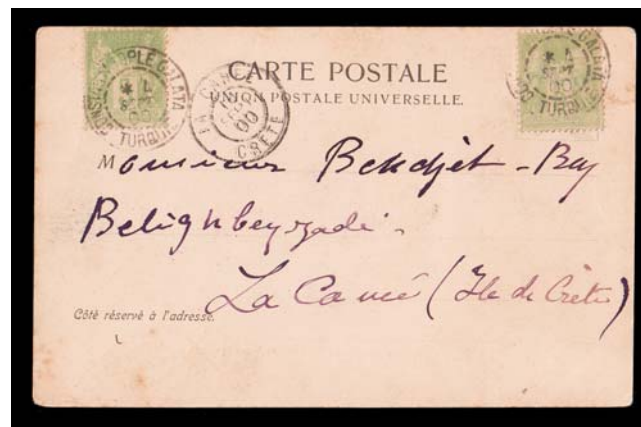 CARTE POSTALE
UNION POSTALE UNIVERSELLE.
CONSTANTINOPLE GALATA
SEPT
00
TURQUIE
LA CANÉE
00
CRETE
GALATA
SEPT
00
TURQUIE
Monsieur Behdjet - Bey
Belighbeyzadé.
La Canée (Ile de Crète)
Côté réservé à l'adresse.